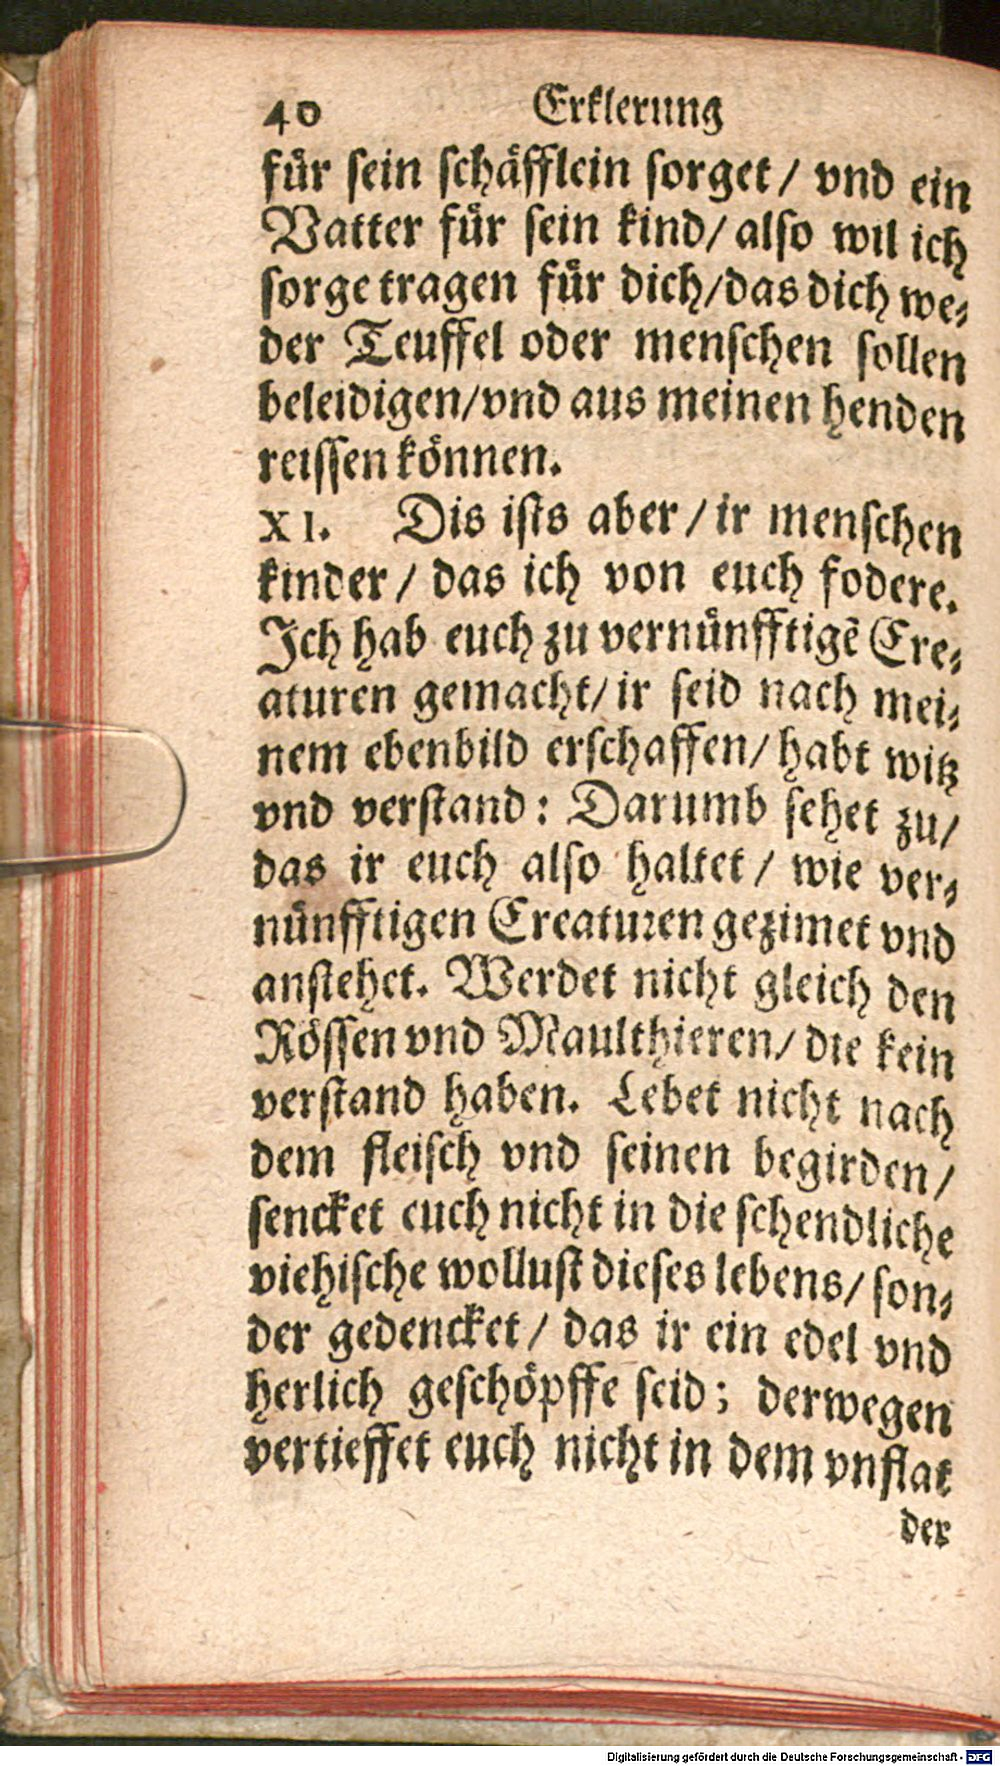 40 Erklerung
für sein schäfflein sorget / vnd ein
Vatter für sein kind / also wil ich
sorge tragen für dich / das dich we⸗
der Teuffel oder menschen sollen
beleidigen / vnd aus meinen henden
reissen können.
XI. Dis ists aber / ir menschen
kinder / das ich von euch fodere.
Ich hab euch zu vernünfftigẽ Cre⸗
aturen gemacht / ir seid nach mei⸗
nem ebenbild erschaffen / habt witz
vnd verstand: Darumb sehet zu /
das ir euch also haltet / wie ver⸗
nünfftigen Creaturen gezimet vnd
anstehet. Werdet nicht gleich den
Rössen vnd Maulthieren / die kein
verstand haben. Lebet nicht nach
dem fleisch vnd seinen begirden /
sencket euch nicht in die schendliche
viehische wollust dieses lebens / son⸗
der gedencket / das ir ein edel vnd
herlich geschöpffe seid; derwegen
vertieffet euch nicht in dem vnflat
der
Digitalisierung gefördert durch die Deutsche Forschungsgemeinschaft - DFG